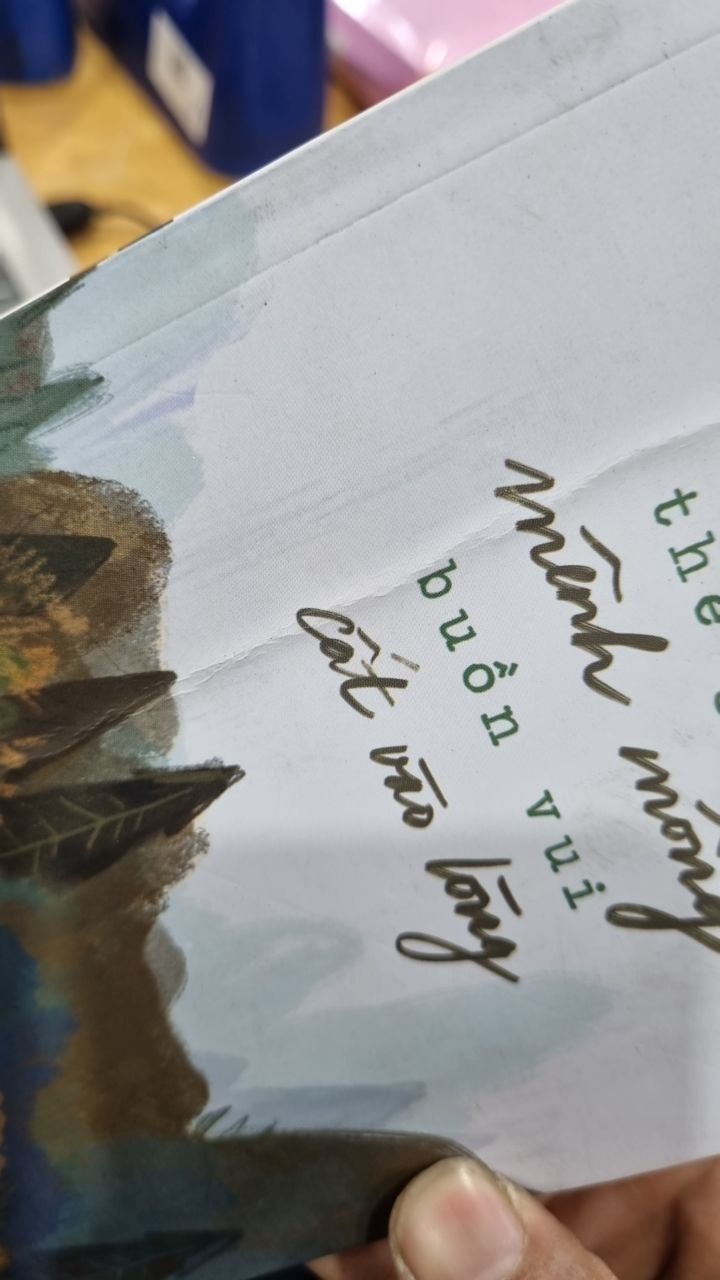 mênh mông
buồn vui
cất vào lòng